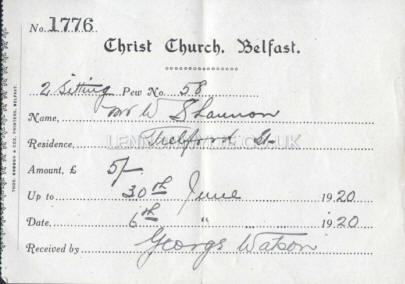 No. 1776
Christ Church, Belfast.
2 Sitting Pew No. 58
Name, Mr W Shannon
Residence, Thelford St
Amount, £ 5/-
Up to 30th June 1920
Date, 6th " 1920
Received by George Watson